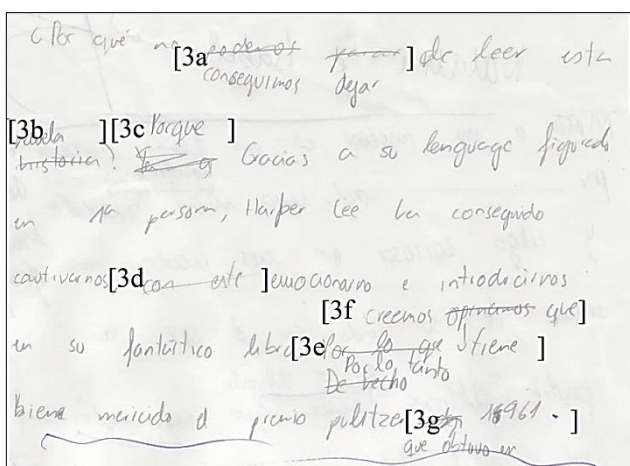 ¿Por qué no [3a podemos parar ] de leer esta
conseguimos dejar
[3b novela ][3c Porque ]
historia? Gracias a su lenguage figurado
en 1ª persona, Harper Lee ha conseguido
cautivarnos [3d con este ] emocionarno e introducirnos
[3f creemos opinamos que]
en su fantástico libro [3e Por lo que tiene ]
Por lo tanto
De hecho
biene mericido el premio pulitzer [3g 1961. ]
que obtuvo en